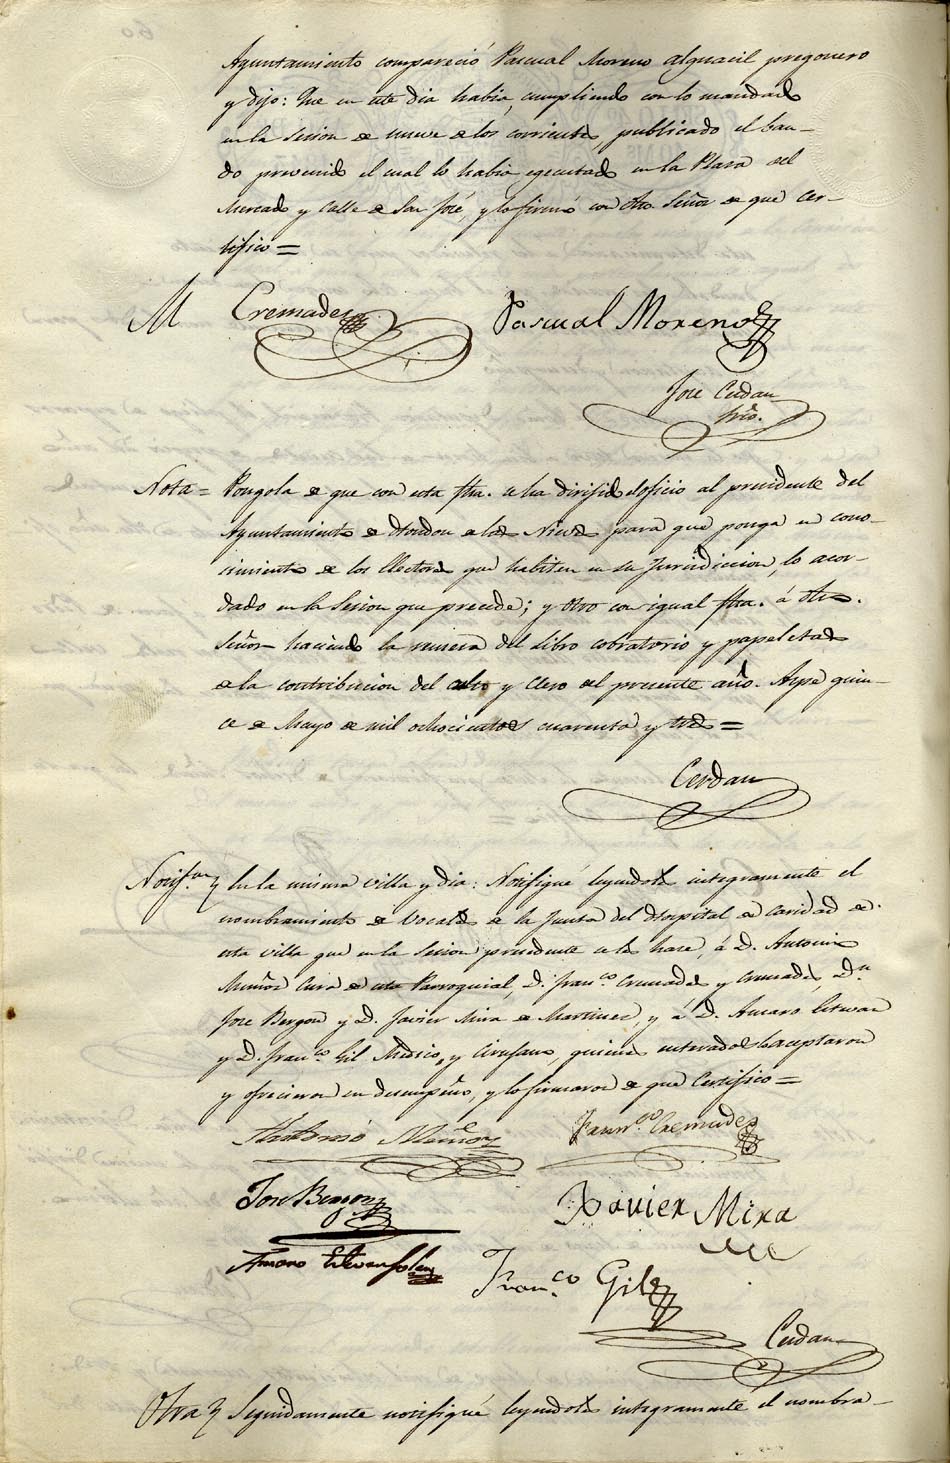 Ayuntamiento compareció Pascual Moreno alguacil pregonero
y dijo: Que en este dia habia, cumpliendo con lo mandado
en la Sesion de nueve de los corrientes, publicado el ban-
do prevenido el cual lo habia egecutado en la Plaza del
Mercado y Calle de San José, y lo firmó con dho. Señor de que cer-
tifico=
M Cremades Pascual Moreno
Jose Cerdan
Srio.
Nota= Pongola de que con esta fha. se ha dirijido oficio al presidente del
Ayuntamiento de Hondon de las Nieves para que ponga en cono-
cimiento de los Electores que habiten en su Jurisdiccion, lo acor-
dado en la Sesion que precede; y otro con igual fha. á dho.
Señor haciendo la remesa del Libro cobratorio y papeletas
de la contribucion del culto y Clero del presente año. Aspe quin-
ce de Mayo de mil ochocientos cuarenta y tres=
Cerdan
Notif.on En la misma villa y dia: Notifiqué leyendoles integramente el
nombramiento de Vocales de la Junta del Hospital de caridad de
esta villa que en la Sesion precedente se les hace, á D. Antonio
Muñoz Cura de esta Parroquial, D. Fran.co Cremades y Cremades, D.n
Jose Bergon y D. Javier Mira de Martinez, y á D. Amaro Estevan
y D. Fran.co Gil Medico, y Cirujano, quienes enterados lo aceptaron
y ofrecieron su desempeño, y lo firmaron de que Certifico=
Antonio Muñoz Fran.co Cremades
Jose Bergon Xavier Mira
Amaro Estevan Soler
Fran.co Gil
Cerdan
Otra Seguidamente notifiqué leyendoles integramente el nombra-